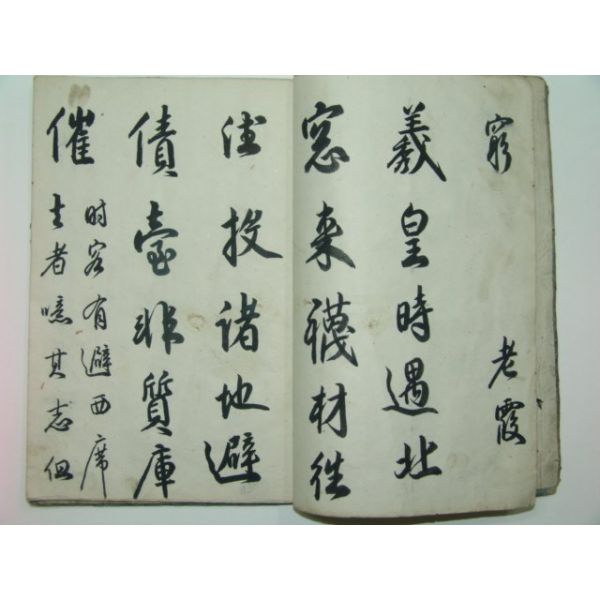 窮 老霞
羲皇時遇北
窓來襪材徃
徃投諸地避
債臺非質庫
催
时客有避西席
去者噫其志但